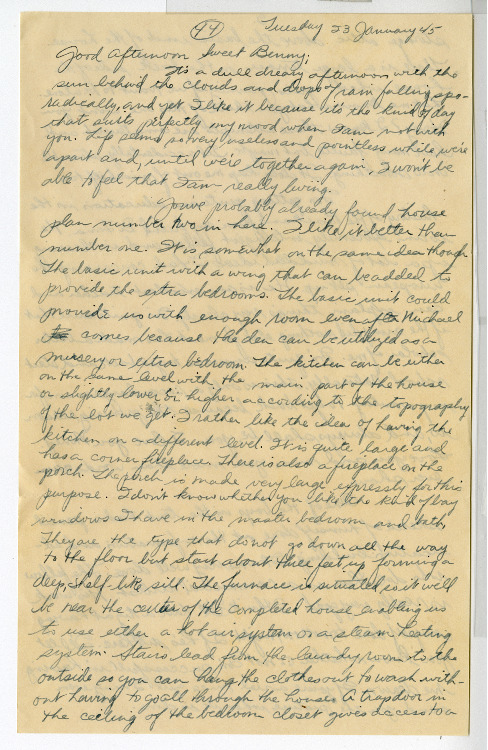 44
Tuesday 23 January 45
Good afternoon Sweet Benny,
It's a dull dreary afternoon with the
sun behind the clouds and drops of rain falling spo-
radically, and yet I like it because it's the kind of day
that suits perfectly my mood when I am not with
you. Life seems so very useless and pointless while we're
apart and, until we're together again, I won't be
able to feel that I am really living.
You've probably already found house
plan number two in here. I like it better than
number one. It is somewhat on the same idea though.
The basic unit with a wing that can be added to
provide the extra bedrooms. The basic unit could
provide us with enough room even after Michael
comes because the den can be utilized as a
nursery or extra bedroom. The kitchen can be either
on the same level with the main part of the house
or slightly lower or higher according to the topography
of the lot we get. I rather like the idea of having the
kitchen on a different level. It is quite large and
has a corner fireplace. There is also a fireplace on the
porch. The porch is made very large expressly for this
purpose. I don't know whether you like the kind of bay
windows I have in the master bedroom and bath.
They are the type that do not go down all the way
to the floor but start about three feet up forming a
deep, shelf-like sill. The furnace is situated so it will
be near the center of the completed house enabling us
to use either a hot air system or a steam heating
system. Stairs lead from the laundry room to the
outside so you can hang the clothes out to wash with-
out having to go all through the house. A trapdoor in
the ceiling of the bedroom closet gives access to a